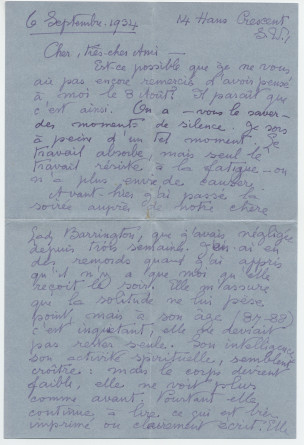 6 Septembre. 1934
14 Hans Crescent
S.W.1
Cher, très-cher Ami —
Est-ce possible que je ne vous
aie pas encore remercié d'avoir pensé
à moi le 8 Août? Il paraît que
c'est ainsi. On a — vous le savez —
des moments de silence. Je sors
à peine d'un tel moment. Le
travail absorbe, mais seul le
travail résiste à la fatigue — on
n'a plus envie de causer.
Avant-hier j'ai passé la
soirée auprès de notre chère
Lady Barrington, que j'avais négligée
depuis trois semaines. J'en ai eu
des remords quand j'ai appris
qu'il n'y a que moi qu'elle
reçoit le soir. Elle m'assure
que la solitude ne lui pèse
point, mais à son âge (87-88)
c'est inquiétant, elle ne devrait
pas rester seule. Son intelligence,
son activité spirituelle, semblent
croître: mais le corps devient
faible, elle ne voit plus
comme avant. Pourtant elle
continue à lire ce qui est bien
imprimé ou clairement écrit. Elle